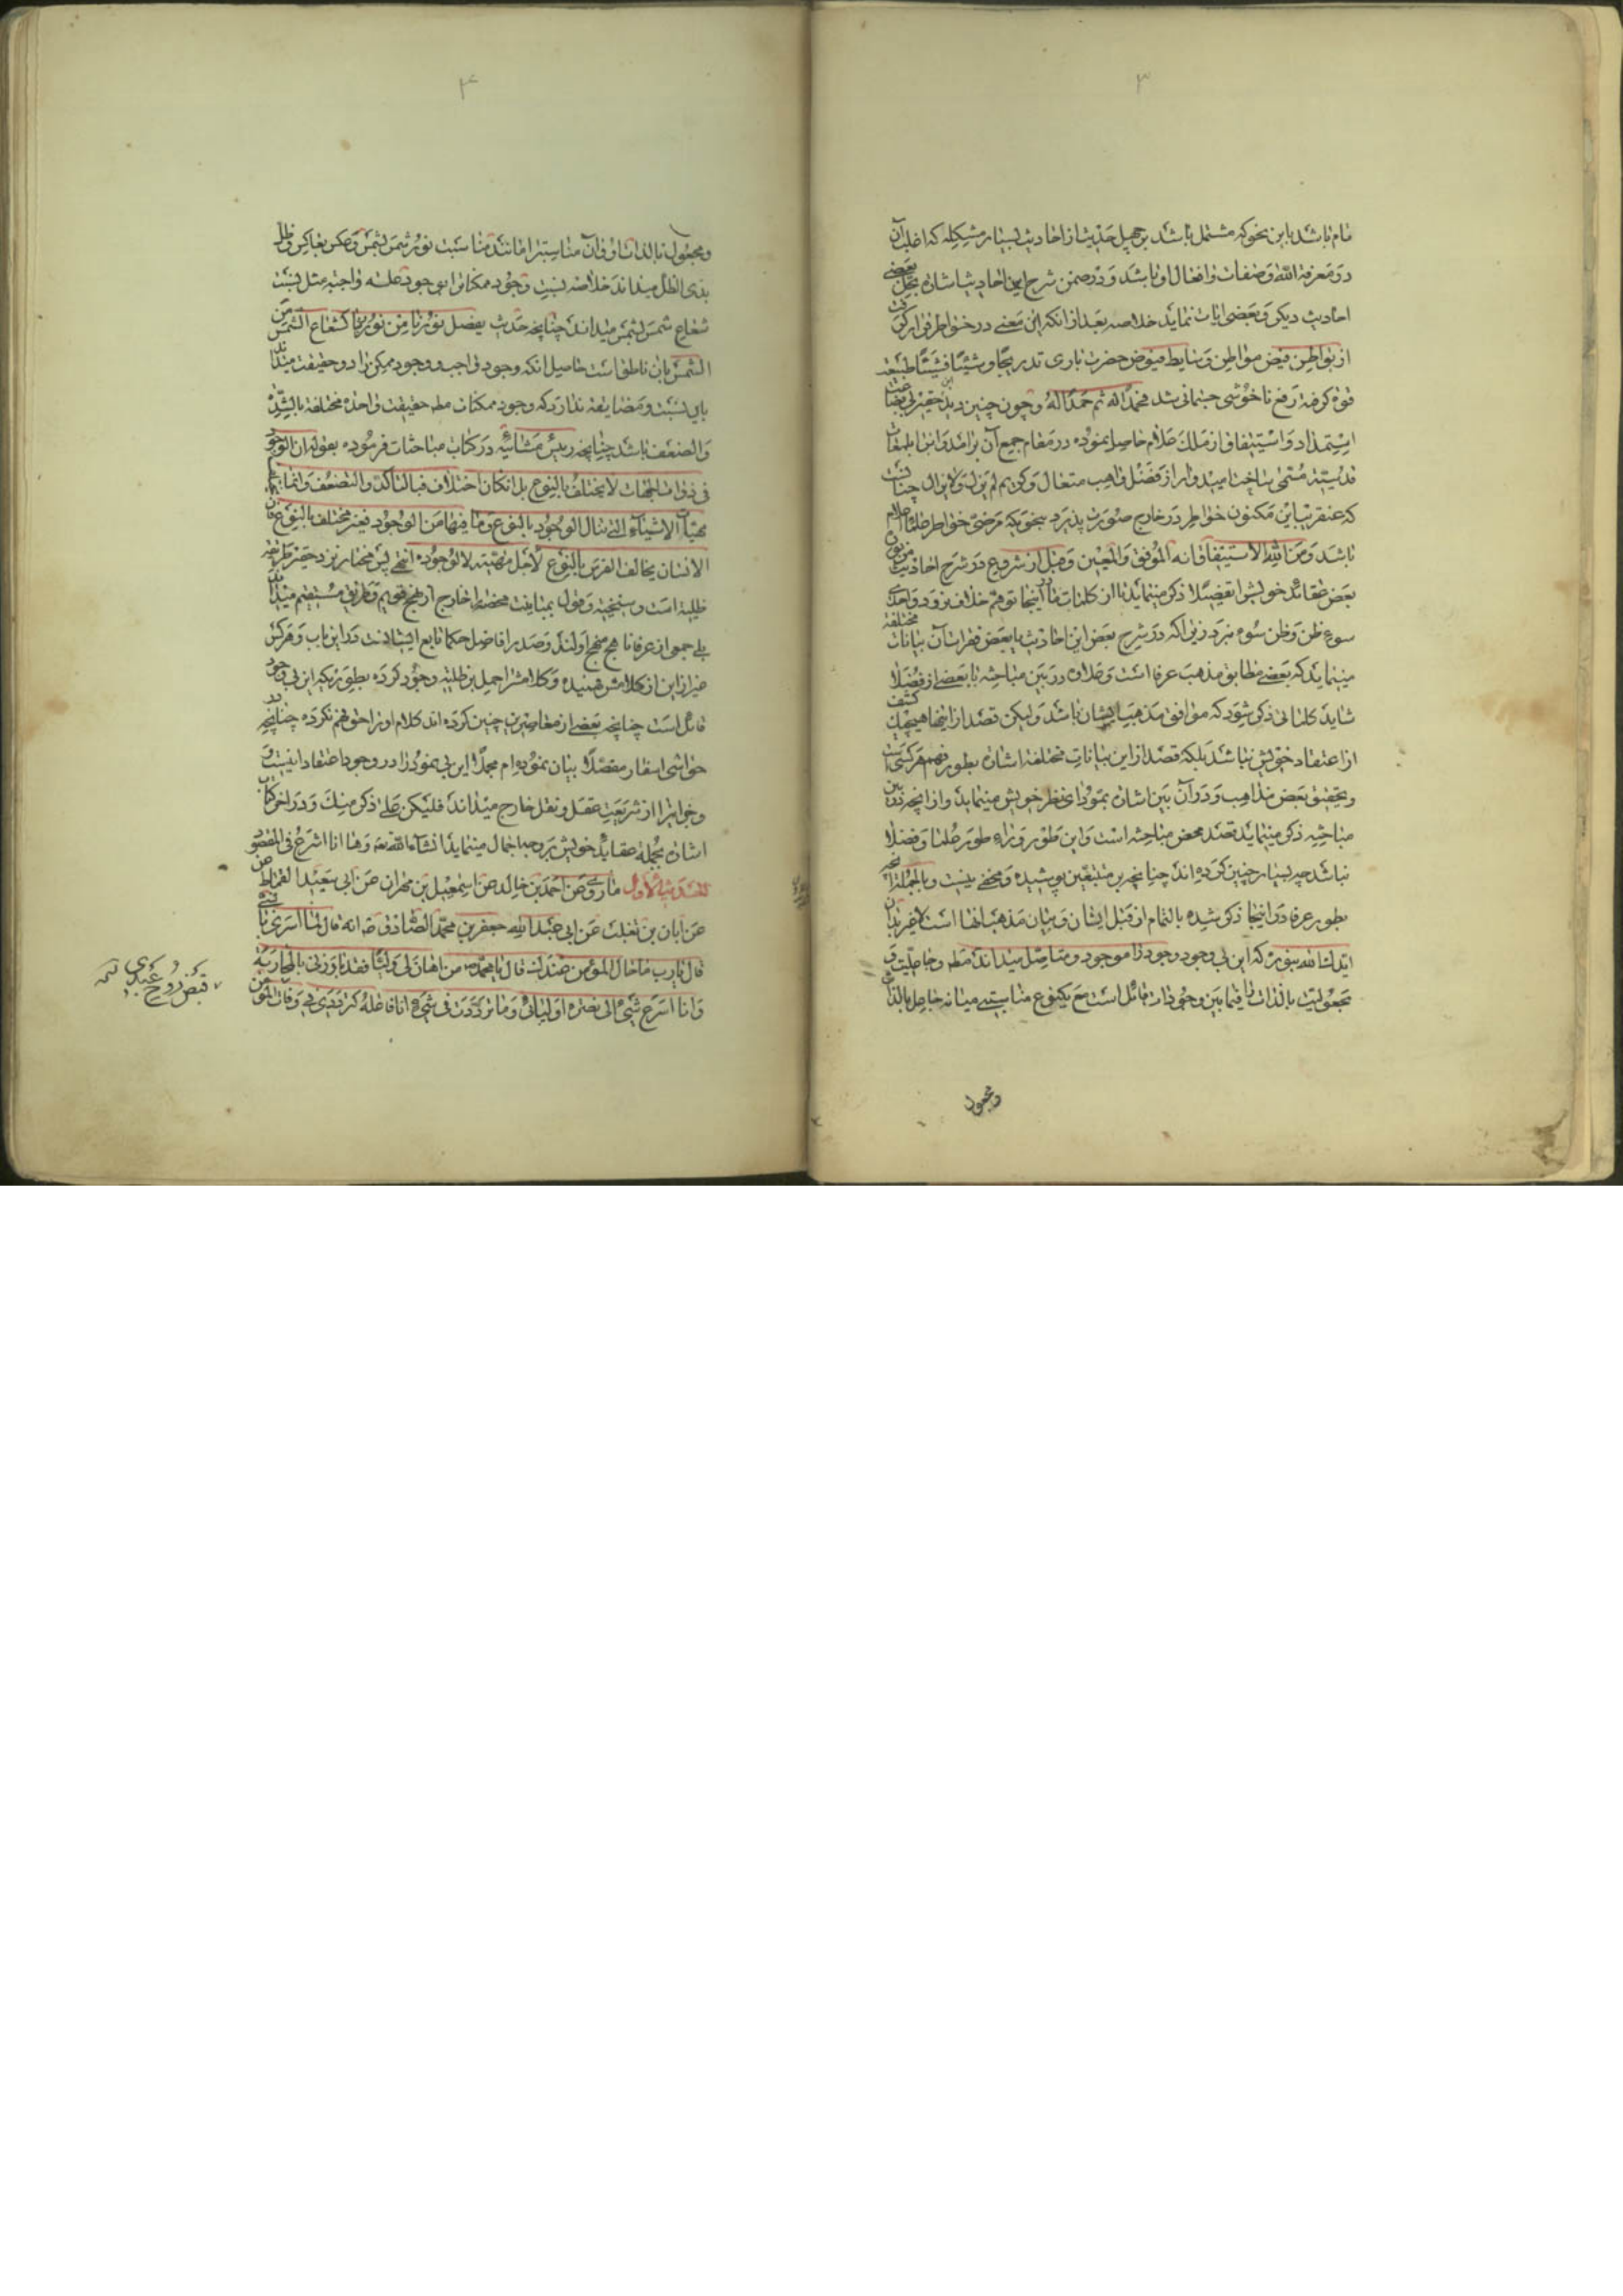 ۳
مام باشد باین نحو که مشتمل باشد بر چهل حدیث از احادیث بسیار مشکله که اغلب آن
در معرفة الله و صفات و افعال او باشد و در ضمن شرح این احادیث اشاره بحل بعضی
احادیث دیگر و بعضی ایات نماید خلاصه بعد از انکه این معنی در خواطر قرار گرفت
از بواطن فیض مواطن و سایط فیوض حضرت باری تدریجا و شیئا فشیئا طبیعت
قوة گرفته رفع ناخوشی جسمانی شد فحمدا لله ثم حمدا له و چون چنین دید این حقیر بی بضاعت
استمداد و استیفاق از ملک علام حاصل نموده در مقام جمع آن برامد و انرا
قدسیته مسمی ساخت امیدوار از فضل واهب متعال و کریم لم یزل و لا یزال چنانست
که عنقریب این مکنون خواطر در خارج صورت پذیرد بنحویکه مرضی خواطر علماء اعلام
باشد و من الله الاستیفاق انه الموفق و المعین و قبل از شروع در شرح احادیث مزبوره
بعض عقائد خویش را تفصیلا ذکر مینماید تا از کلمات ما در اینجا توهم خلاف نرود و احدی
سوء ظن و ظن سوء نبرد زیرا که در شرح بعض این احادیث یا بعض فقرات آن بیانات مختلفه
مینماید که بعضی مطابق مذهب عرفا است و علاوه در بین مباحثه با بعضی از فضلا
شاید کلماتی ذکر شود که موافق مذهب ایشان باشد و لیکن قصد از اینها هیچیک کشف
از اعتقاد خویش نباشد بلکه قصد از این بیانات مختلفه اشاره بطور فهم هر کسی است
و تحقیق بعض مذاهب و در آن بین اشاره بمودای نظر خویش مینماید و از انچه در بین
مباحثه ذکر مینماید قصد محض مباحثه است و این طور وراء طور علما و فضلا
نباشد چه بسیار چنین کرده اند چنانچه بر متتبعین پوشیده و مخفی نیست و بالجمله انچه
بطور عرفا در اینجا ذکر شده بالتمام از قبل ایشان و بیان مذهب انها است لا غیر بدان
ایدک الله بنوره که این بی وجود وجود را موجود و متاصل میداند مطه و جاعلیت و
مجعولیت بالذات را فیما بین وجودات قائل است مع یکنوع مناسبتی میانه جاعل بالذات
ومجعول
۴
و مجعول بالذات او و ان مناسبت را مانند مناسبت نور شمس بشمس و عکس بعاکس و ظل
بذی الظل میداند خلاصه نسبت وجود ممکن را بوجود علته واجبه مثل نسبت
شعاع شمس بشمس میداند چنانچه حدیث یفصل نورنا من نور ربنا کشعاع الشمس من
الشمس بان ناطق است حاصل انکه وجود واجب و وجود ممکن را دو حقیقت میداند
باین نسبت و مضایقه ندارد که وجود ممکنات مطه حقیقت واحده مختلفه بالشدة
و الضعف باشد چنانچه رییس مشائیه در کتاب مباحثات فرموده بقوله ان الوجود
فی ذوات المهیات لا یختلف بالنوع بل ان کان اختلاف فبالتاکد و التضعف و انما یختلف
مهیات الاشیاء التی تنال الوجود بالنوع و ما فیها من الوجود فغیر مختلف بالنوع فان
الانسان یخالف الفرس بالنوع لاجل مهیته لا لوجوده انتهی پس مختار نزد حقیر طریقه
ظلیة است و سنخیة و قول بمباینت محضه را خارج از نهج قویم و طریق مستقیم میداند
بلی جمعی از عرفا ناهج منهج اولند و صدر افاضل حکما تابع ایشانست در این باب و هر کس
غیر از این از کلامش فهمیده و کلامش را حمل بر ظلیة وجود کرده بطوریکه این بی وجود
قائل است چنانچه بعضی از معاصرین چنین کرده اند کلام او را خوب فهم نکرده چنانچه در
حواشی اسفار مفصلا بیان نموده ام مجملا این بی نمود را در وجود اعتقاد اینست
و جز این را از شریعت عقل و نقل خارج میداند فلیکن علی ذکر منک و در اخر کتاب
اشاره بجمله عقاید خویش بر وجه اجمال مینماید انشاء الله تعه و ها انا اشرع فی المقصود
الحدیث الاول ما روی عن احمد بن خالد عن اسمعیل بن مهران عن ابی سعید القماط عن
عن ابان بن تغلب عن ابی عبد الله جعفر بن محمد الصادق ع انه قال لما اسری بالنبی
قال یا رب ما حال المؤمن عندک قال یا محمد من اهان لی ولیا فقد بارزنی بالمحاربة
و انا اسرع شیء الی نصرة اولیائی و ما ترددت فی شیء انا فاعله کترددی فی وفات المؤمن
قبض روح عبدی